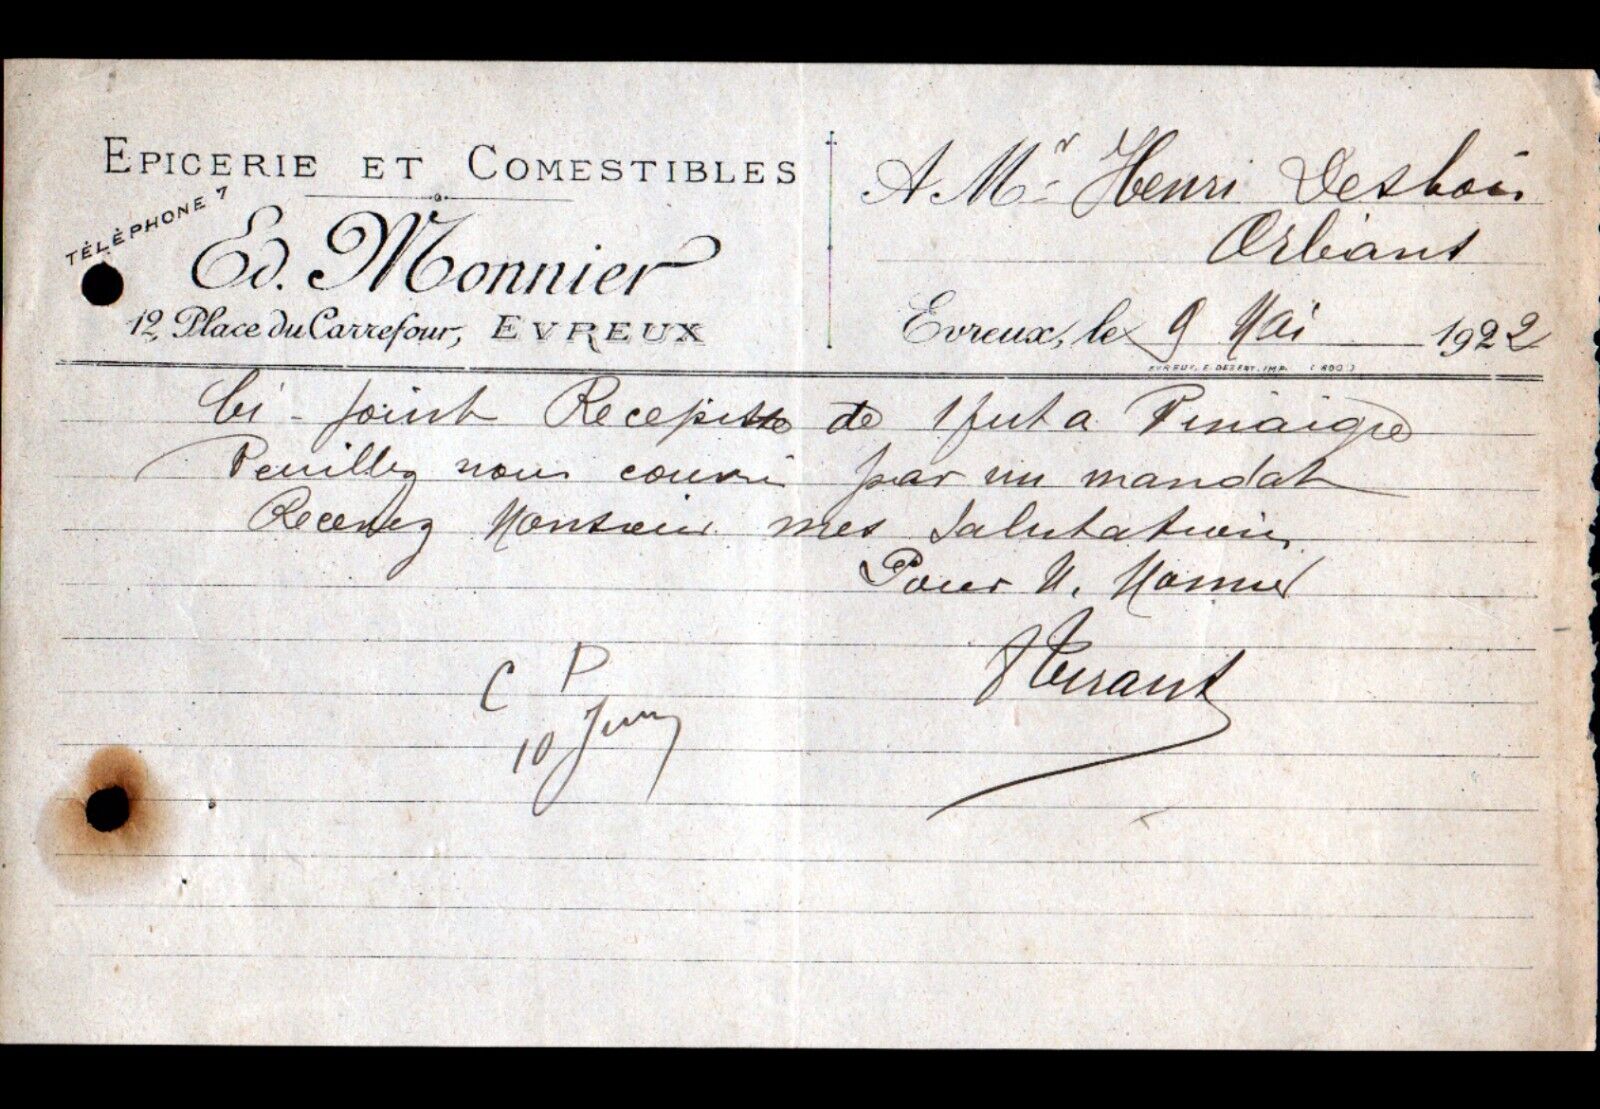 EPICERIE ET COMESTIBLES
TÉLÉPHONE 7
Ed. Monnier
12, Place du Carrefour, EVREUX
A Mr Henri Desbois
Orléans
Evreux, le 9 Mai 1922
EVREUX, E. DEZERT, IMP. (800)
Ci-joint Recepisse de 1 fut a Vinaigre
Veuillez nous couvrir par un mandat
Recevez Monsieur mes Salutations
Pour M. Monnier
C P
10